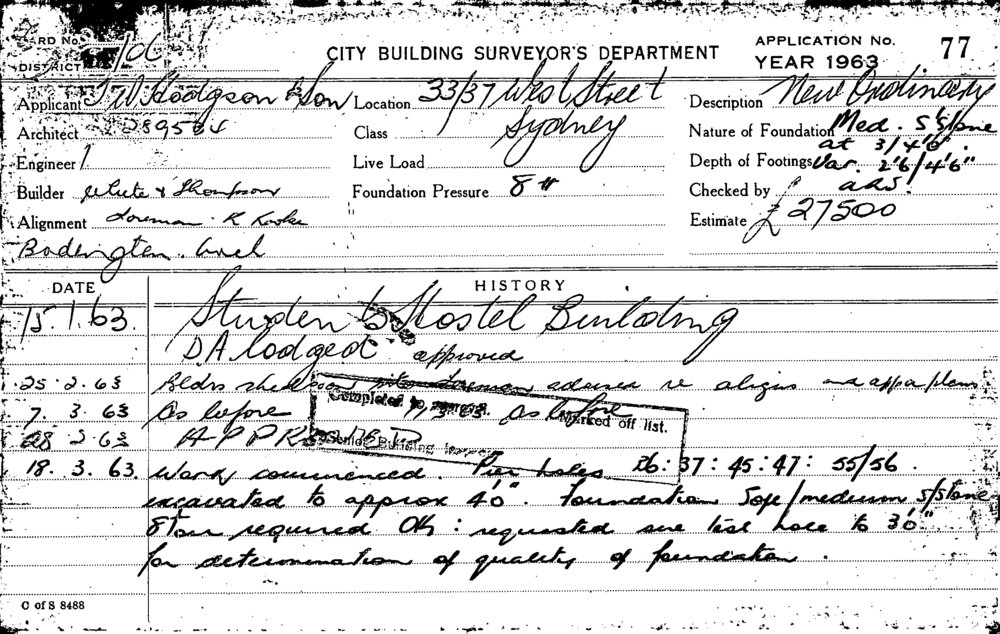 CARD No.
DISTRICT /06
CITY BUILDING SURVEYOR'S DEPARTMENT
APPLICATION No. 77
YEAR 1963
Applicant T W Hodgson & Son
Location 33/37 West Street
Sydney
Description New Ordinary
Architect
Class
Nature of Foundation Med. S'stone
at 3/4'0"
Engineer
Live Load
Depth of Footings Var. 2'6/4'6"
Builder White & Thompson
Foundation Pressure 8
Checked by
Alignment foreman K
Estimate £27500
DATE HISTORY
15.1.63. Students Hostel Building
DA lodged approved
25.2.63 Bldrs re aligns and
7.3.63 As before As before
Completed to
Marked off list.
Senior Building
28 2 63 APPROVED
18.3.63. Work commenced. Pier holes 37:45:47:55/56.
excavated to approx 4'0". foundation Soft/medium s/stone
8 Ton required OK: requested one test hole to 3'0"
for determination of quality of foundation.
C of S 8488